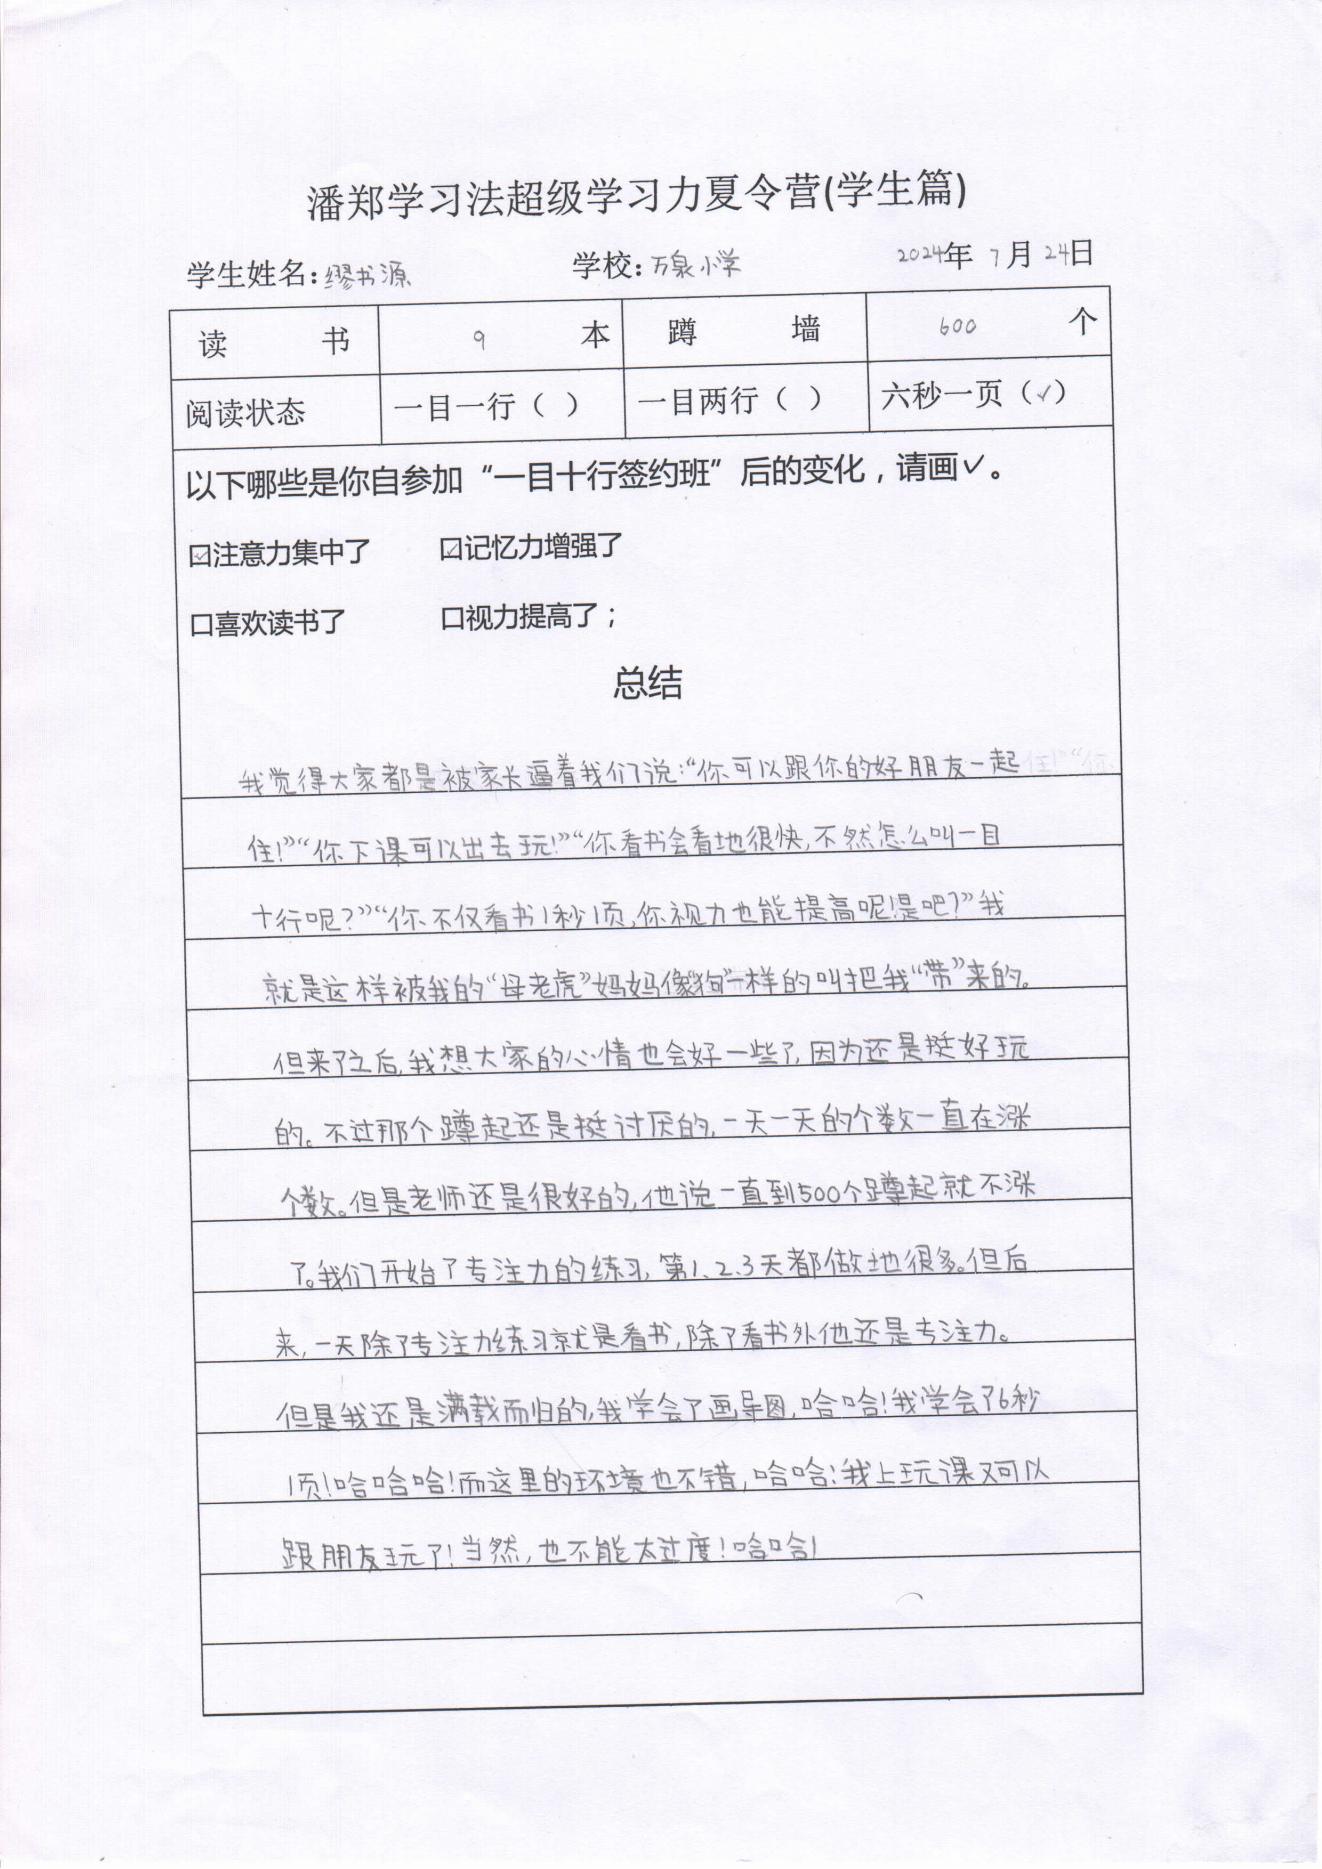 潘郑学习法超级学习力夏令营(学生篇)
学生姓名:缪书源 学校:万泉小学 2024年 7月24日
读 书 9 本 蹲 墙 600 个
阅读状态 一目一行( ) 一目两行( ) 六秒一页(✓)
以下哪些是你自参加“一目十行签约班”后的变化,请画✓。
☑注意力集中了 ☑记忆力增强了
口喜欢读书了 口视力提高了;
总结
我觉得大家都是被家长逼着我们了说:“你可以跟你的好朋友一起
住!”“你下课可以出去玩!”“你看书会看地很快,不然怎么叫一目
十行呢?”“你不仅看书1秒1页,你视力也能提高呢!是吧?”我
就是这样被我的“母老虎”妈妈像“狗”一样的叫把我“带”来的。
但来了之后,我想大家的心情也会好一些了,因为还是挺好玩
的。不过那个蹲起还是挺讨厌的,一天一天的个数一直在涨
个数。但是老师还是很好的,他说一直到500个蹲起就不涨
了。我们开始了专注力的练习,第1、2、3天都做地很多。但后
来,一天除了专注力练习就是看书,除了看书外他还是专注力。
但是我还是满载而归的,我学会了画导图,哈哈!我学会了6秒
1页!哈哈哈!而这里的环境也不错,哈哈!我上玩课又可以
跟朋友玩了!当然,也不能太过度!哈哈!